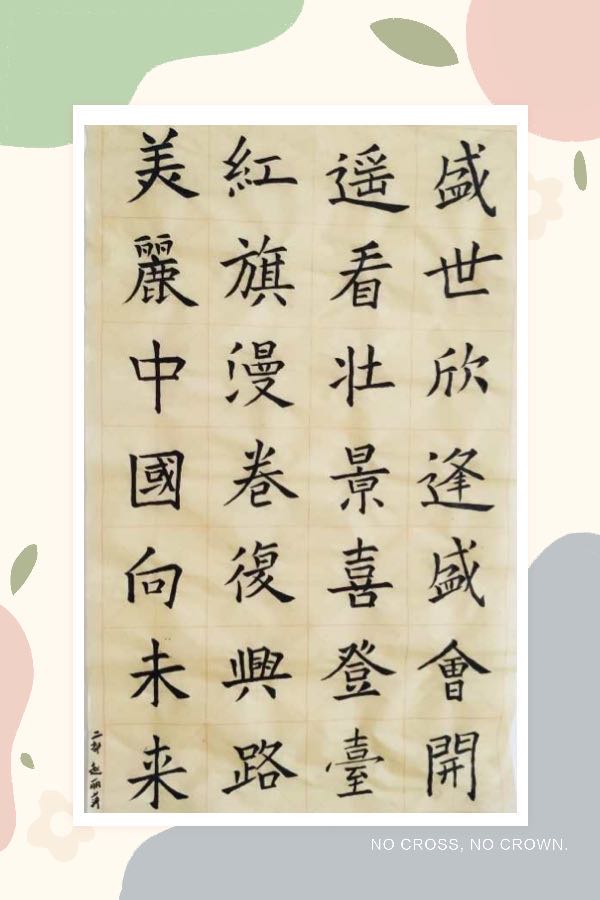 盛世欣逢盛會開
遥看壮景喜登臺
紅旗漫卷復興路
美麗中國向未来
NO CROSS, NO CROWN.